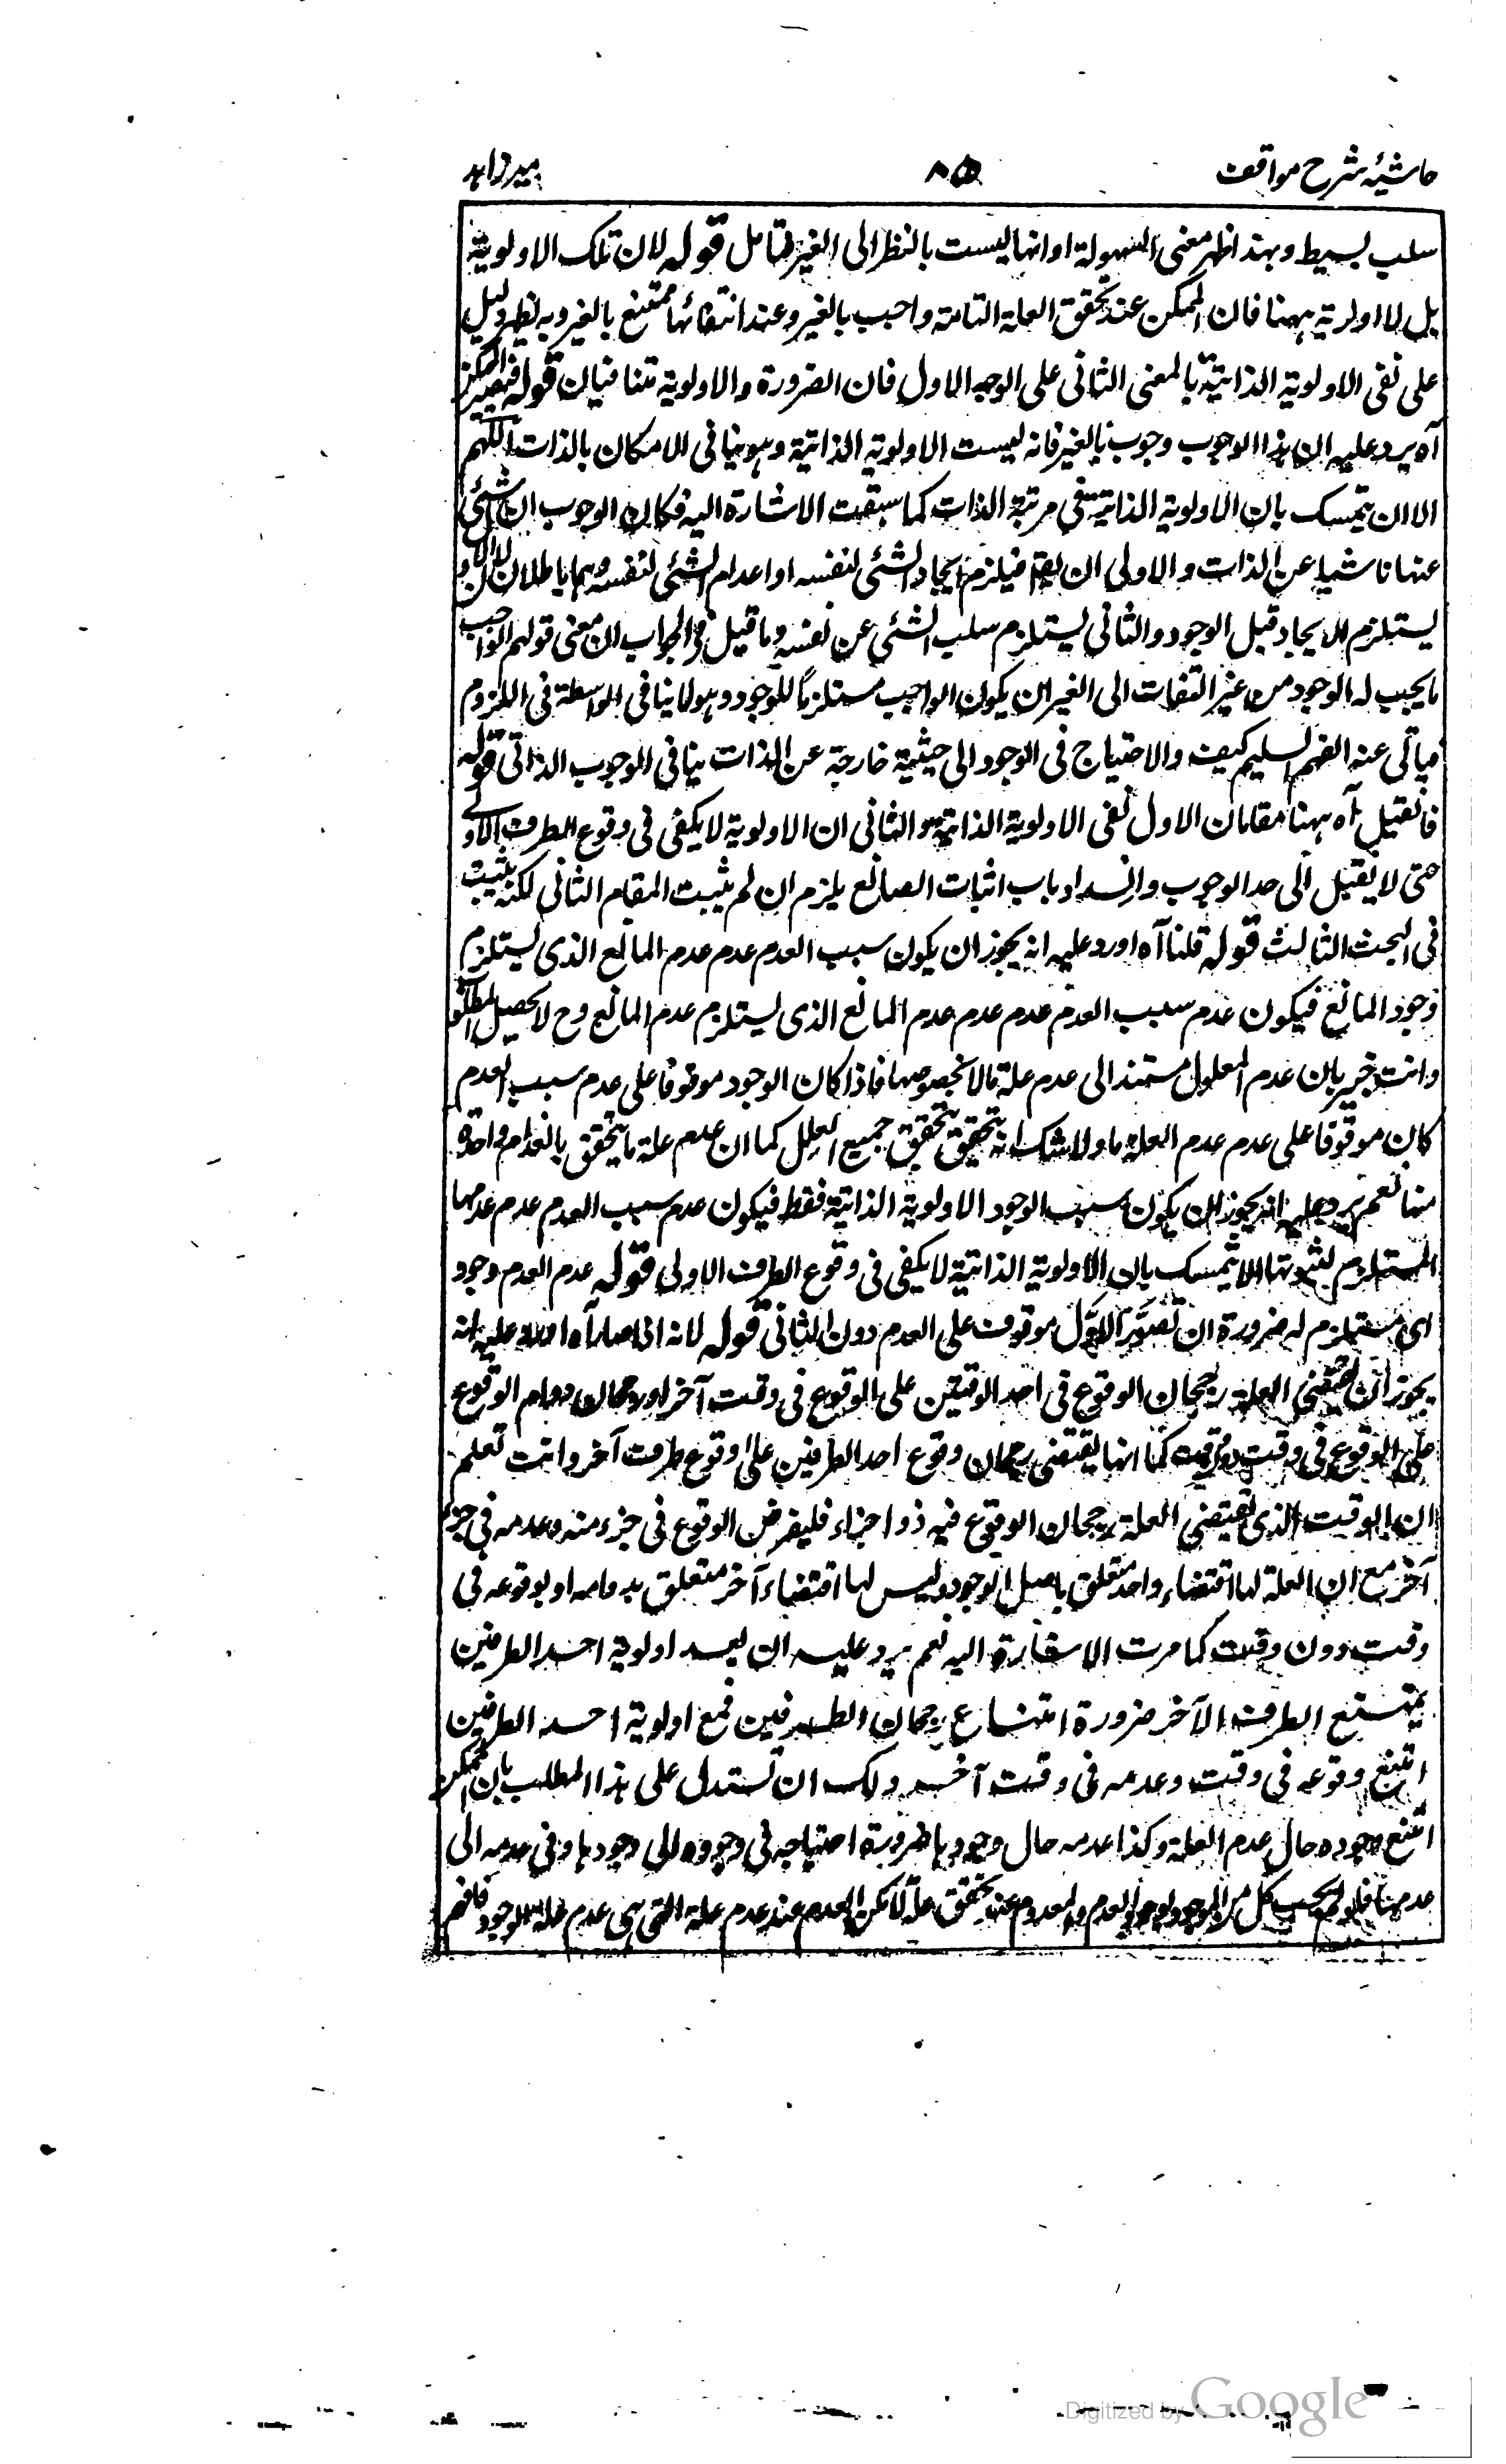 حاشیۂ شرح مواقف
۸۵
میر زاہد
سلب بسیط وبهذا ظهر معنی السهولة اوانها لیست بالنظر الی الغیر فتامل قوله لان تلک الاولویة
بل لا اولویة ههنا فان الممکن عند تحقق العلة التامة واجب بالغیر وعند انتفائها ممتنع بالغیر وبه یظهر دلیل
علی نفی الاولویة الذاتیة بالمعنی الثانی علی الوجه الاول فان الضرورة والاولویة تتنافیان قوله فیصیر الممکن
آه یرد علیه ان هذا الوجوب وجوب بالغیر فانه لیست الاولویة الذاتیة وهو ینافی الامکان بالذات اللهم
الا ان یتمسک بان الاولویة الذاتیة فی مرتبة الذات کما سبقت الاشارة الیه فکان الوجوب ان شئی
عنها ناشیا عن الذات والاولی ان یقة فیلزم ایجاد الشئی لنفسه او اعدام الشئی لنفسه وهما باطلان لان الاول
یستلزم الایجاد قبل الوجود والثانی یستلزم سلب الشئی عن نفسه وما قیل فی الجواب ان معنی قولهم الواجب
ما یجب له الوجود من غیر التفات الی الغیر ان یکون الواجب مستلزمًا للوجود وهو لا ینافی الواسطة فی اللزوم
فیأبی عنه الفهم السلیم کیف والاحتیاج فی الوجود الی حیثیة خارجة عن الذات ینافی الوجوب الذاتی قوله
فان قیل آه ههنا مقامان الاول نفی الاولویة الذاتیة والثانی ان الاولویة لا یکفی فی وقوع الطرف الاولی
حتی لا یقبل الی حد الوجوب وانسداد باب اثبات الصانع یلزم ان لم یثبت المقام الثانی لکنه یثبت
فی البحث الثالث قوله قلنا آه اورد علیه انه یجوز ان یکون سبب العدم عدم عدم المانع الذی یستلزم
وجود المانع فیکون عدم سبب العدم عدم عدم عدم المانع الذی یستلزم عدم المانع وح لا یحصل المطلوب
وانت خبیر بان عدم المعلول مستند الی عدم علة ما لا بخصوصها فاذا کان الوجود موقوفا علی عدم سبب العدم
کان موقوفا علی عدم عدم العلة ما ولا شک انه یتحقق بتحقق جمیع العلل کما ان عدم علة ما یتحقق بانعدام واحدة
منها نعم یرد علیه انه یجوز ان یکون سبب الوجود الاولویة الذاتیة فقط فیکون عدم سبب العدم عدم عدمها
المستلزم لثبوتها الا یتمسک بان الاولویة الذاتیة لا یکفی فی وقوع الطرف الاولی قوله عدم العدم وجود
ای مستلزم له ضرورة ان تصوّر الاوّل موقوف علی العدم دون الثانی قوله لانه اذا صار آه اورد علیه انه
یجوز ان یقتضی العلة رجحان الوقوع فی احد الوقتین علی الوقوع فی وقت آخر او رجحان دوام الوقوع
علی الوقوع فی وقت دون وقت کما انها یقتضی رجحان وقوع احد الطرفین علی وقوع طرف آخر وانت تعلم
ان الوقت الذی تقتضی العلة رجحان الوقوع فیه ذو اجزاء فلیفرض الوقوع فی جزء منه وعدمه فی جزء
آخر مع ان العلة لها اقتضاء واحد متعلق باصل الوجود ولیس لها اقتضاء آخر متعلق بدوامه او بوقوعه فی
وقت دون وقت کما مرت الاشارة الیه نعم یرد علیه ان بعد اولویة احد الطرفین
یمتنع الطرف الآخر ضرورة امتناع رجحان الطرفین فمع اولویة احد الطرفین
امتنع وقوعه فی وقت وعدمه فی وقت آخر ولک ان تستدل علی هذا المطلب بان الممکن
امتنع وجوده حال عدم العلة وکذا عدمه حال وجودها ضرورة احتیاجه فی وجوده الی وجودها وفی عدمه الی
عدمها فلو لم یجب کل من الوجود والعدم عند تحقق علة لامکن العدم عند عدم علة التی هی عدم علة الوجود فافهم